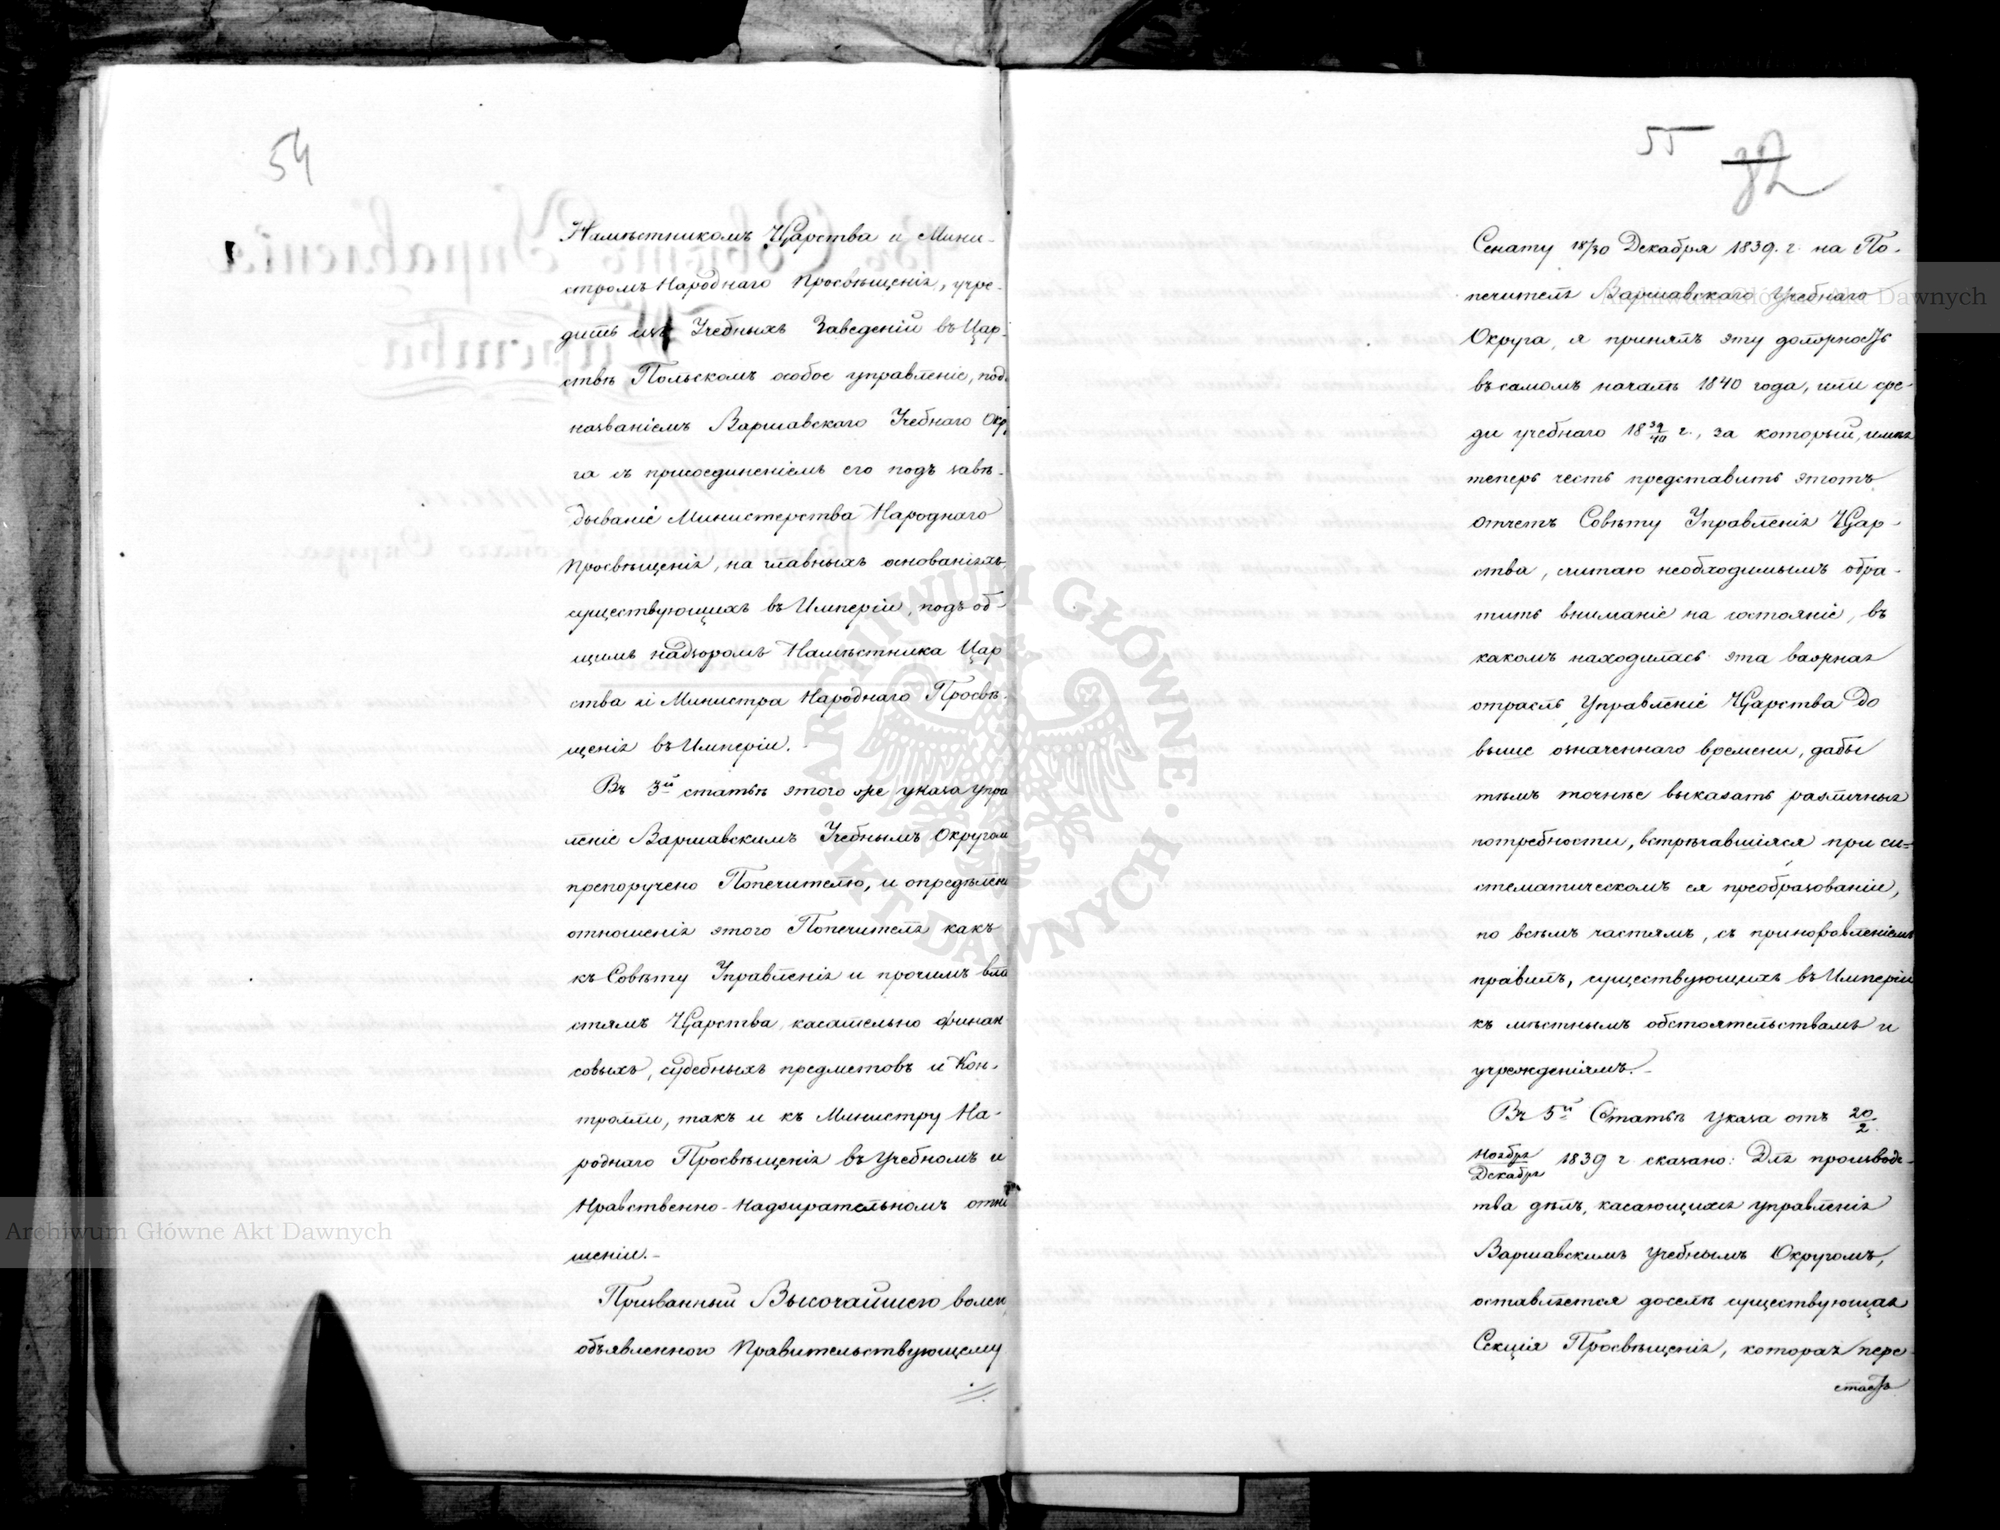 54
Намѣстникомъ Царства и Мини-
стромъ Народнаго Просвѣщенія, учре-
дить изъ Учебныхъ Заведеній въ Цар-
ствѣ Польскомъ особое управленіе, под
названіемъ Варшавскаго Учебнаго Окр
га съ присоединеніемъ его подъ завѣ-
дываніе Министерства Народнаго
Просвѣщенія, на главныхъ основаніяхъ
существующихъ въ Имперіи, подъ об-
щимъ надзоромъ Намѣстника Цар
ства и Министра Народнаго Просвѣ-
щенія въ Имперіи.
Въ 3й статьѣ этого же указа упра
леніе Варшавскимъ Учебнымъ Округом
препоручено Попечителю, и опредѣлен
отношенія этого Попечителя какъ
къ Совѣту Управленія и прочимъ вла
стямъ Царства, касательно финан
совыхъ, судебныхъ предметовъ и Кон-
троли, такъ и къ Министру На-
роднаго Просвѣщенія въ учебномъ и
Нравственно-Надзирательномъ отно
шеніи.-
Призванный Высочайшею волею
объявленною Правительствующему
55 32
Сенату 18/30 Декабря 1839. г. на По-
печителя Варшавскаго Учебнаго
Округа, я принялъ эту должность
въ самомъ началѣ 1840 года, или сре-
ди учебнаго 18 39/40 г., за который, имѣя
теперь честь представить этотъ
отчетъ Совѣту Управленія Цар-
ства, считаю необходимымъ обра-
тить вниманіе на состояніе, въ
какомъ находилась эта важная
отрасль Управленіе Царства до
выше означеннаго времени, дабы
тѣмъ точнѣе выказать различныя
потребности, встрѣчавшіяся при си=
стематическомъ ея преобразованіи,
по всѣмъ частямъ, съ принаровленіемъ
правилъ, существующихъ въ Имперіи
къ мѣстнымъ обстоятельствамъ и
учрежденіямъ.-
Въ 5й Статьѣ указа отъ 20/2
Ноября/Декабря 1839 г. сказано: Для производс-
тва дѣлъ, касающихся управленія
Варшавскимъ учебнымъ Округомъ,
оставляется доселѣ существующая
Секція Просвѣщенія, которая пере
стаетъ
Archiwum Główne Akt Dawnych
Archiwum Główne Akt Dawnych
ARCHIWUM GŁÓWNE
AKT DAWNYCH